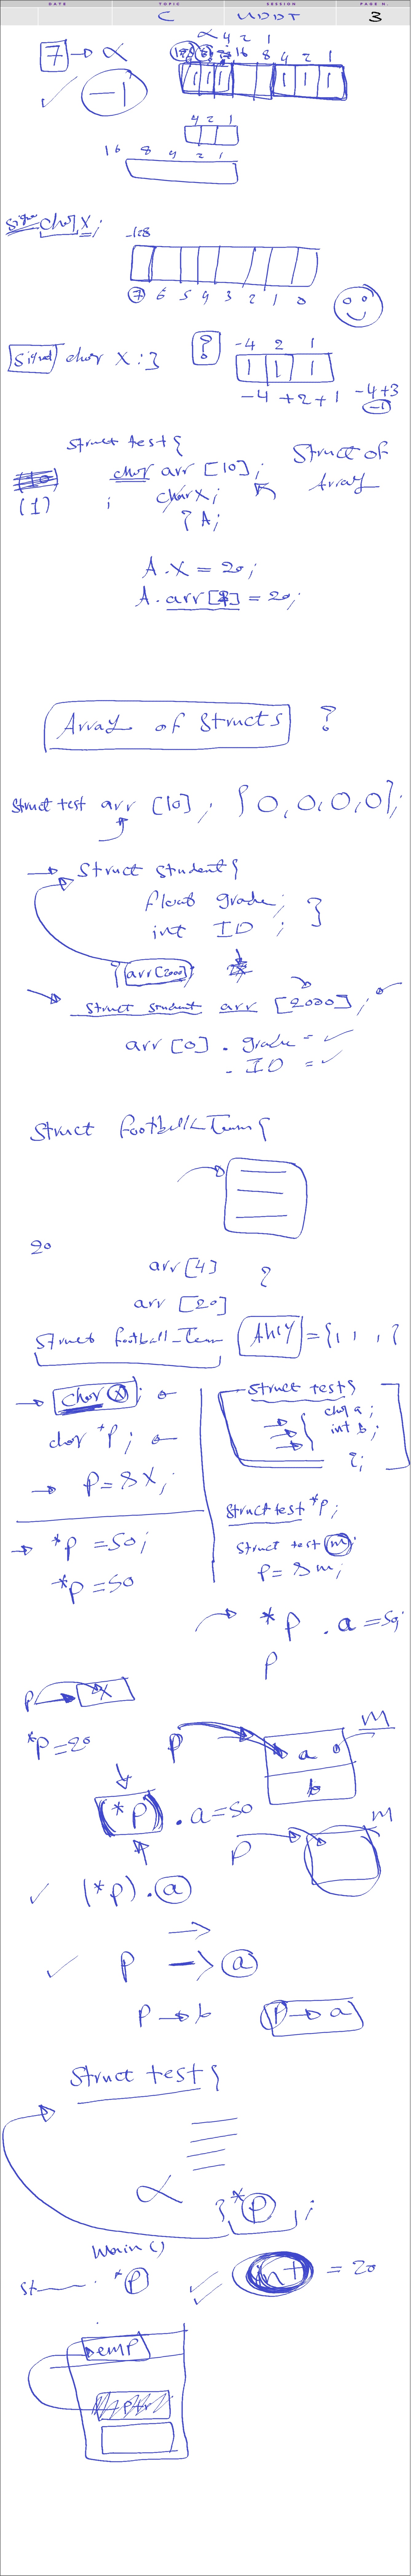 DATE TOPIC SESSION PAGE N.
C UDDT 3
∝ 4 2 1
7 → ∝ 16 8 4 2 1
1 1 1 1 1 1
✓ -1
4 2 1
16 8 4 2 1
char x;
-128
7 6 5 4 3 2 1 0
signed char x:3 ? -4 2 1
1 1 1
-4 +2 +1 -4+3
-1
struct test {
char arr [10]; struct of
(1) ; char x; Array
} A;
A.x = 20;
A.arr[] = 20;
Array of structs ?
struct test arr [10]; {0,0,0,0};
→ struct student {
float grade;
int ID ; }
} arr[2000]
struct student arr [2000];
arr [0] . grade = ✓
. ID = ✓
struct football_Team {
20
arr [4] }
arr [20]
struct football_Team Ahly = {1, , , }
→ char x; struct test {
char *p; char a;
int b;
→ p = &x; };
struct test *p;
→ *p = 50; struct test m;
*p = 50 p = &m;
→ *p . a = 50;
p
p → x
*p = 20 p a m
b
(*p) . a = 50 m
p
✓ (*p).a
→
✓ p → a
p → b p → a
struct test {
∝
} *p ;
main ()
st . *p ✓ int = 20